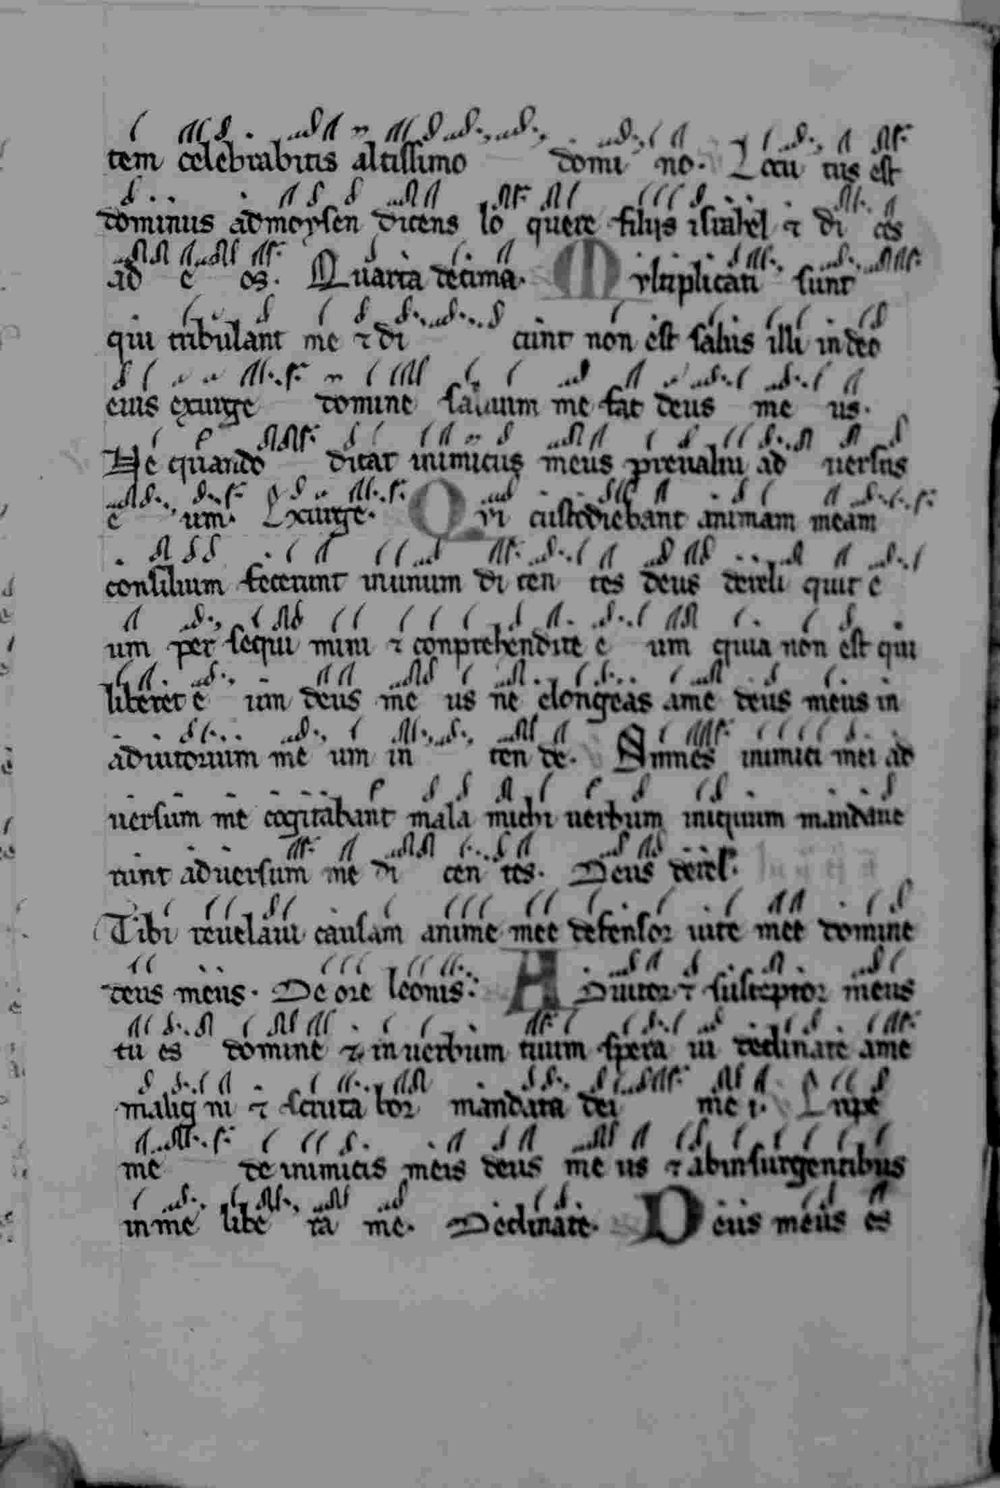 tem celebrabitis altissimo domi no. Locu tus est
dominus ad moysen dicens lo quere filiis israhel ⁊ di ces
ad e os. Quarta decima. Multiplicati sunt
qui tribulant me ⁊ di cunt non est salus illi in deo
eius exurge domine saluum me fac deus me us.
Ne quando dicat inimicus meus preualui ad uersus
e um. Exurge. Qui custodiebant animam meam
consilium fecerunt inunum di cen tes deus dereli quit e
um per sequi mini ⁊ conprehendite e um quia non est qui
liberet e um deus me us ne elongeas ame deus meus in
adiutorium me um in ten de. Omnes inimici mei ad
uersum me cogitabant mala michi uerbum iniquum mandaue
runt aduersum me di cen tes. Deus derel.
Tibi reuelaui causam anime mee defensor uite mee domine
deus meus. De ore leonis. Adiutor ⁊ susceptor meus
tu es domine ⁊ in uerbum tuum spera ui declinate ame
malig ni ⁊ scruta bor mandata dei me i. Eripe
me de inimicis meis deus me us ⁊ abinsurgentibus
in me libe ra me. Declinate. Deus meus es